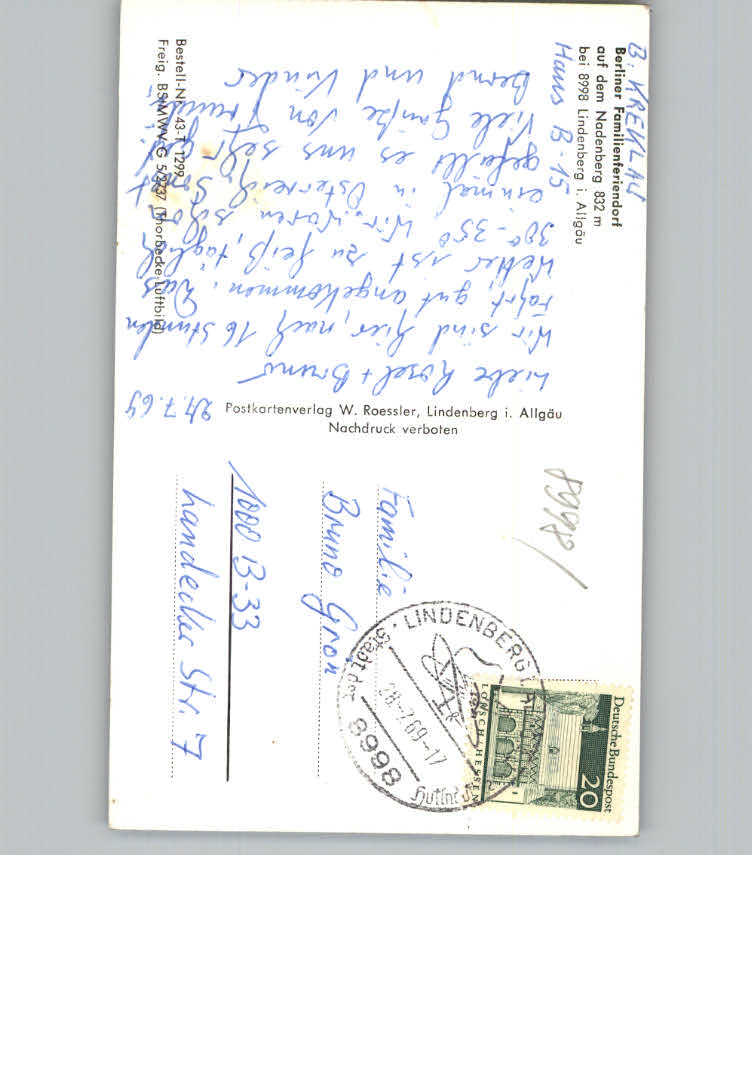 B. KREKLAU
Berliner Familienferiendorf
auf dem Nadenberg 832 m
bei 8998 Lindenberg i. Allgäu
Haus B-15
24.7.69
Liebe Rosel + Bruno
Wir sind hier, nach 16 Stunden
Fahrt, gut angekommen. Das
Wetter ist zu heiß, täglich
30°-35° Wir waren schon
einmal in Österreich, sonst
gefällt es uns sehr gut
Viele Grüße von Traudi
Bernd und Kinder
Bestell-Nr. 43-T 1299
Freig. BStMWV G 5/2737 (Thorbecke-Luftbild)
Postkartenverlag W. Roessler, Lindenberg i. Allgäu
Nachdruck verboten
8998/
Familie
Bruno Gron
1000 B-33
Landecker Str. 7
LINDENBERG i. AL
Stadt der
28.-7.69-17
8998
Deutsche Bundespost
20
LORSCH/HESSEN